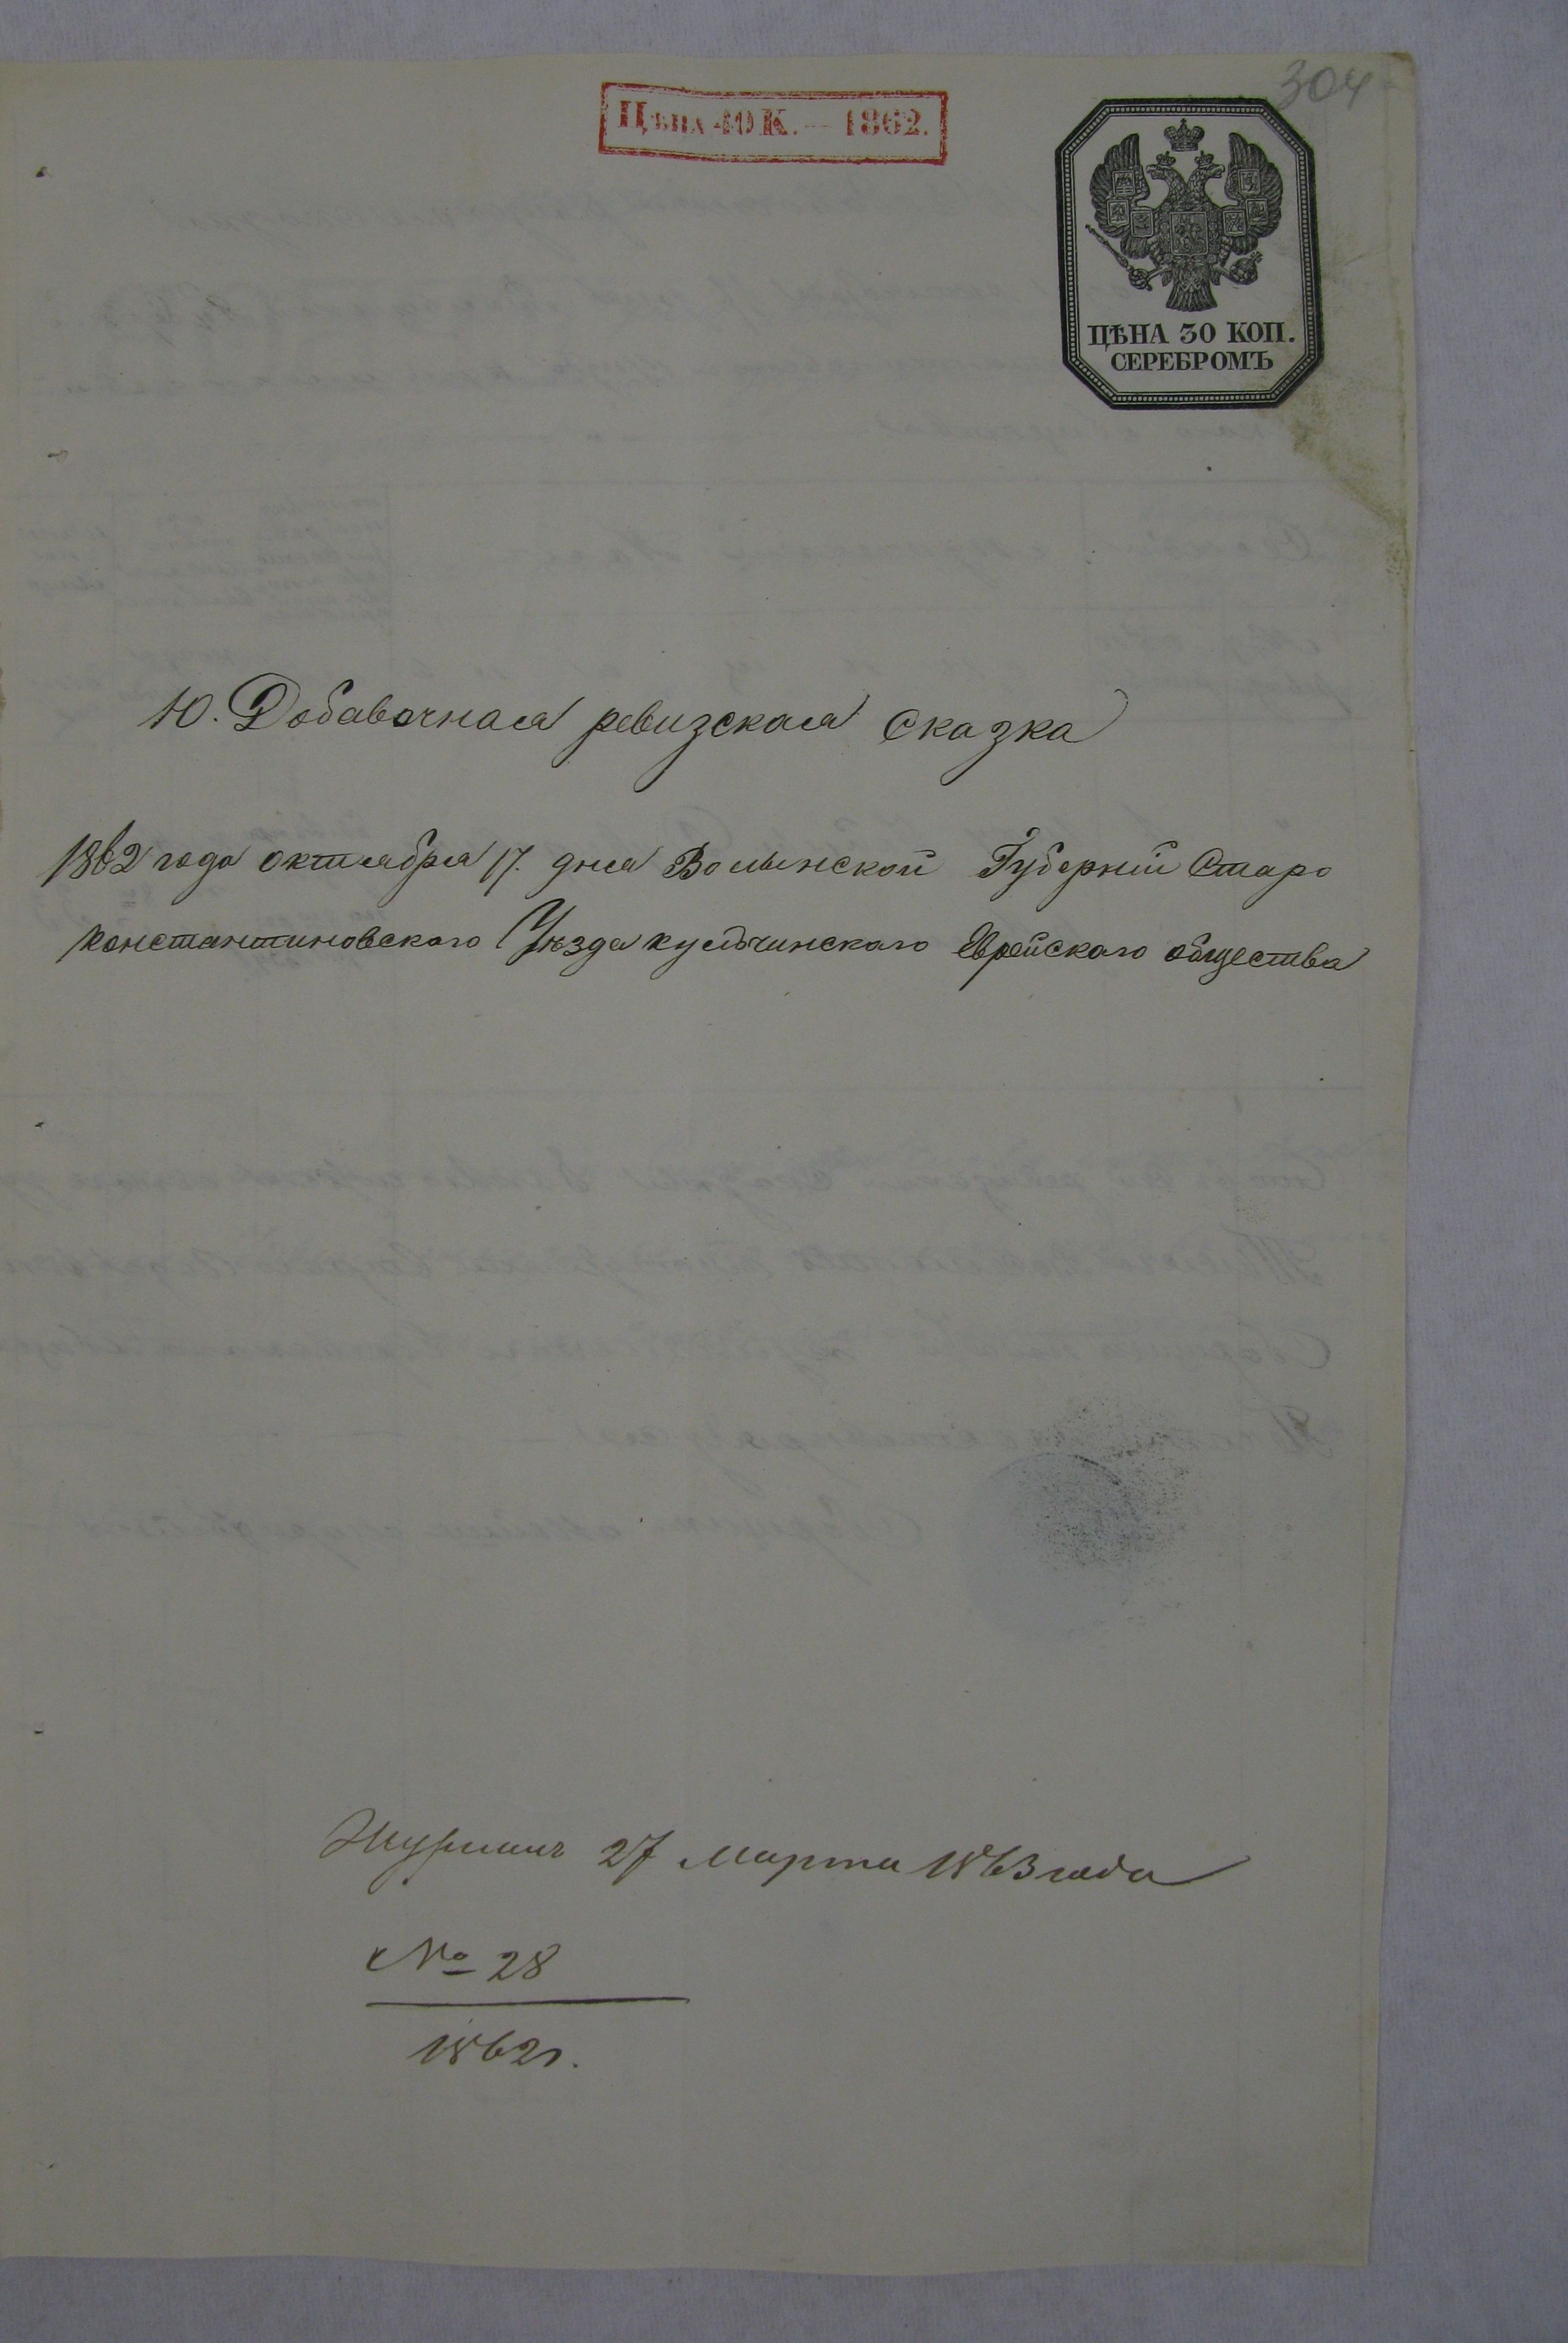 304
Цѣна 40 К. — 1862.
ЦѢНА 30 КОП.
СЕРЕБРОМЪ
10. Добавочная ревизская сказка
1862 года октября 17. дня Волынской Губерніи Старо
константиновского Уѣзда кульчинскаго Еврейскаго общества
27 марта 1863 года
№ 28
1862 г.